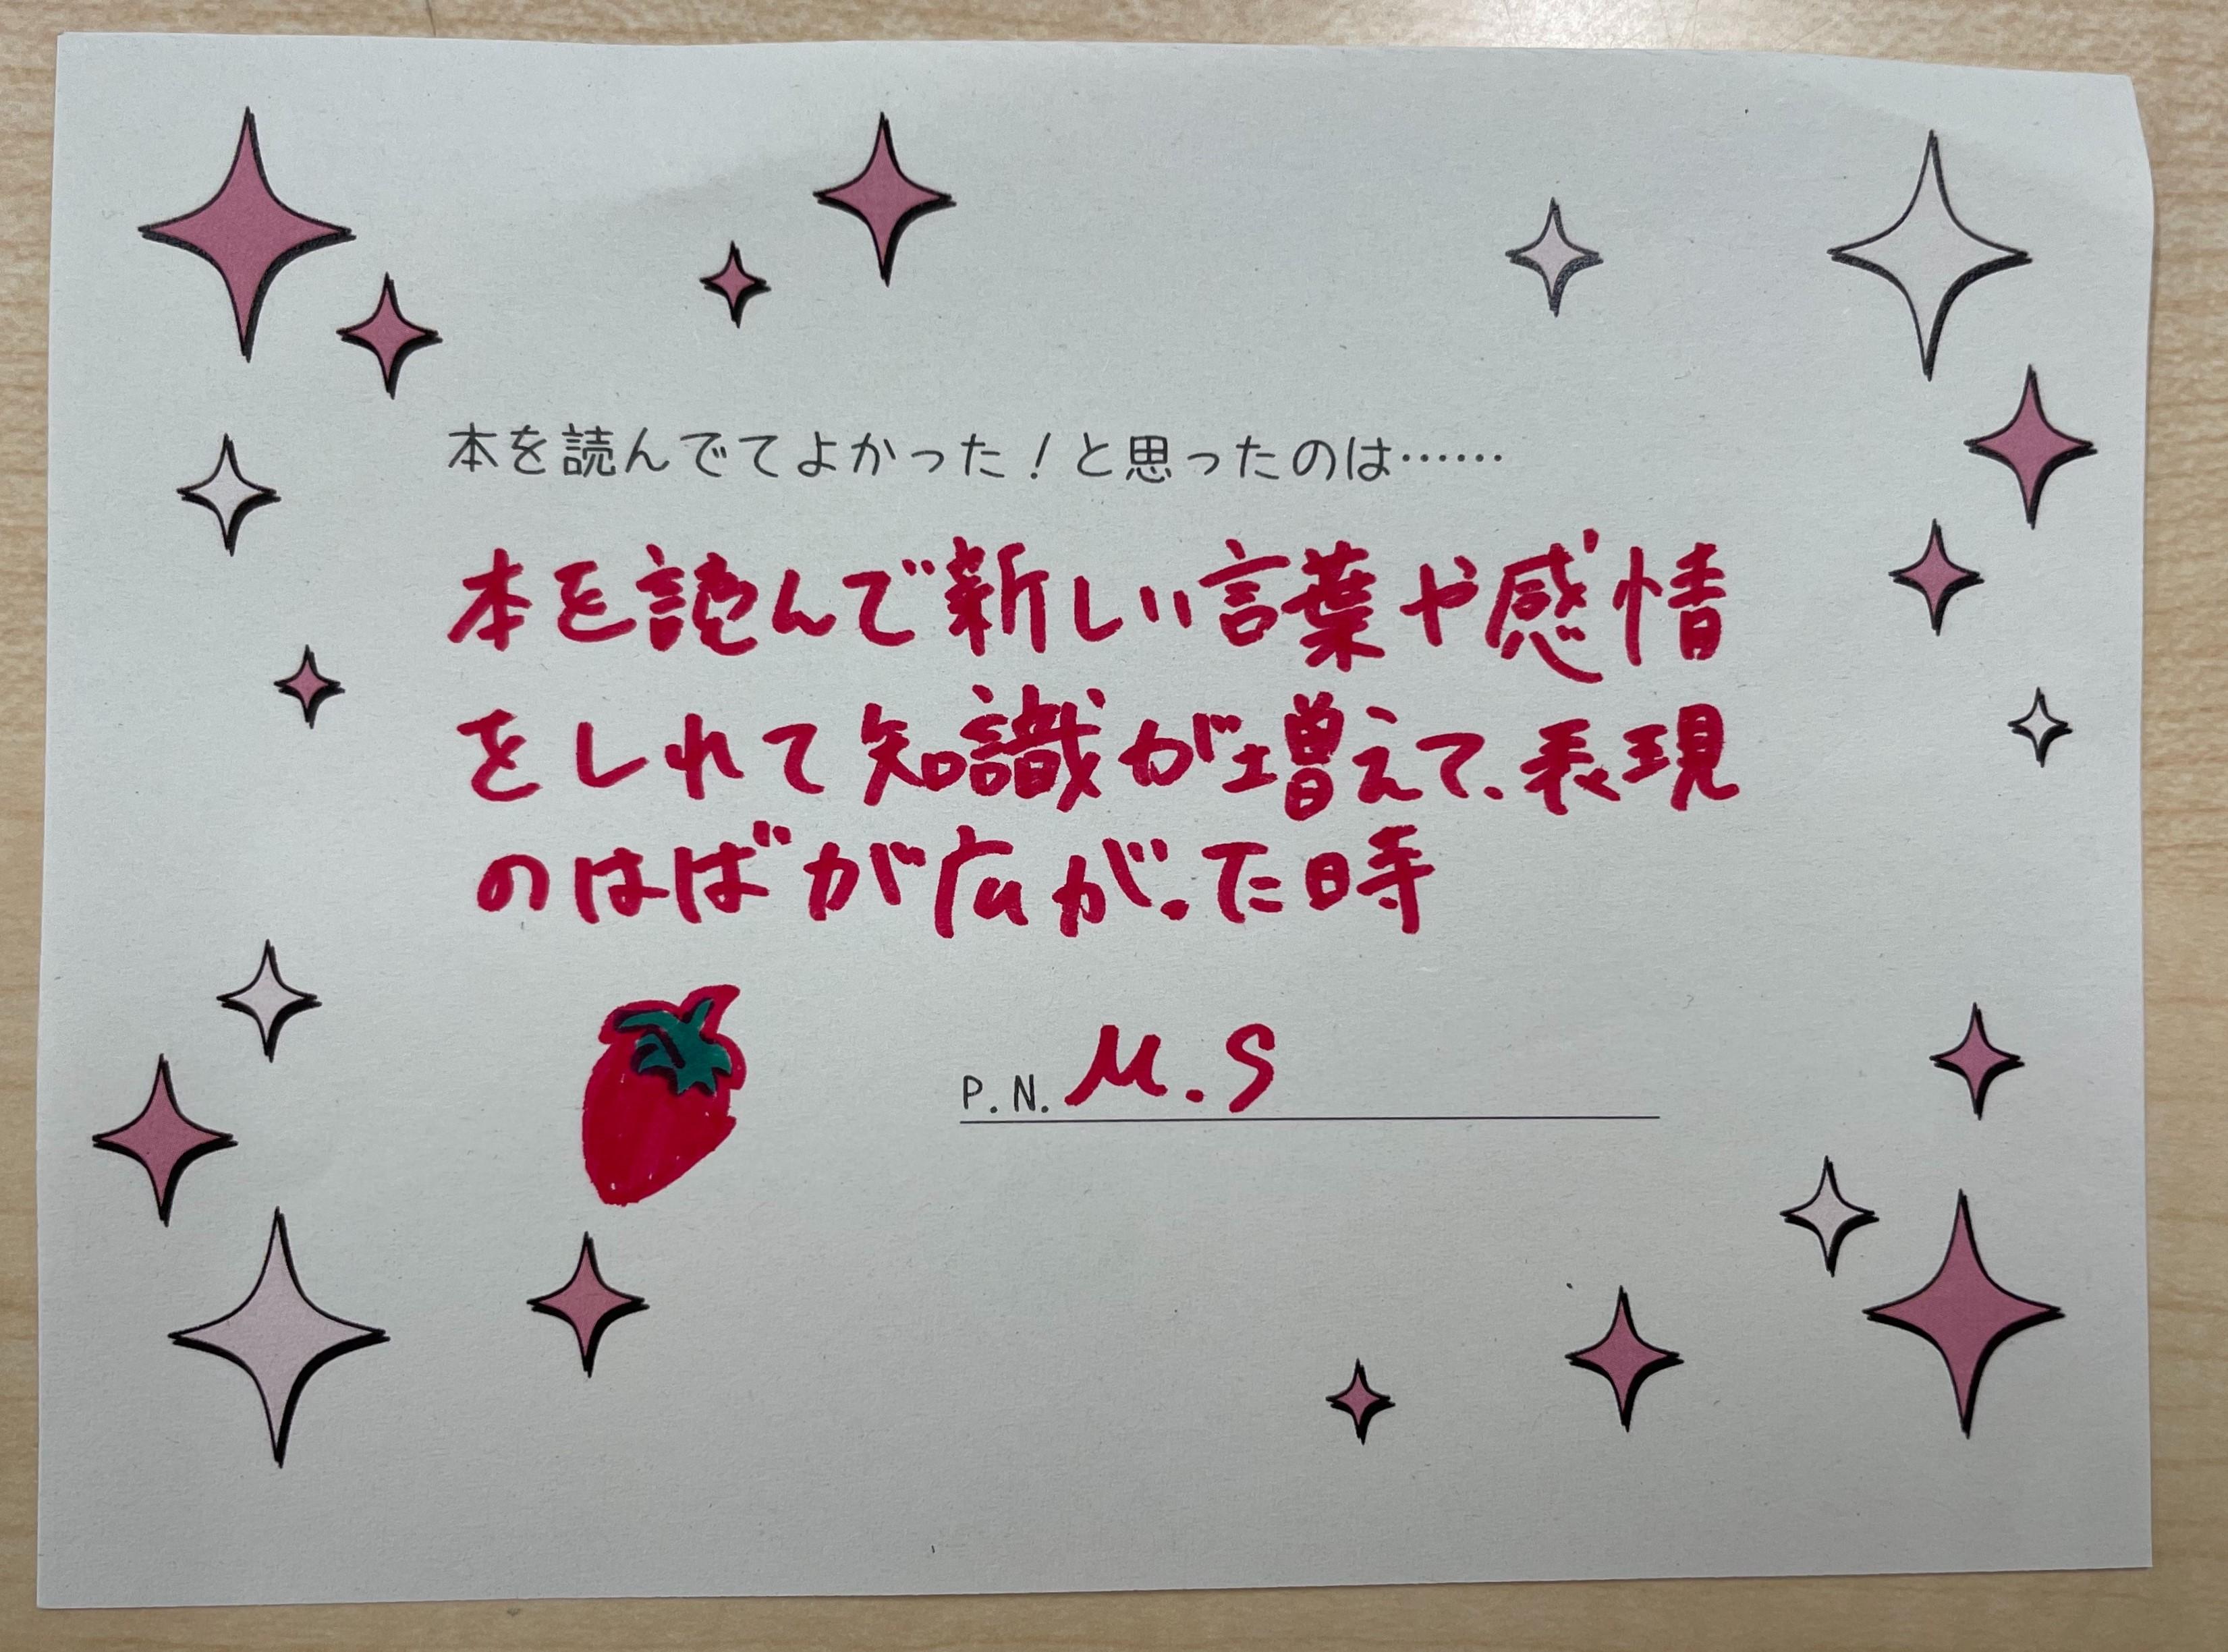 本を読んでてよかった！と思ったのは……
本を読んで新しい言葉や感情
をしれて知識が増えて、表現
のはばが広がった時
P.N. M.S